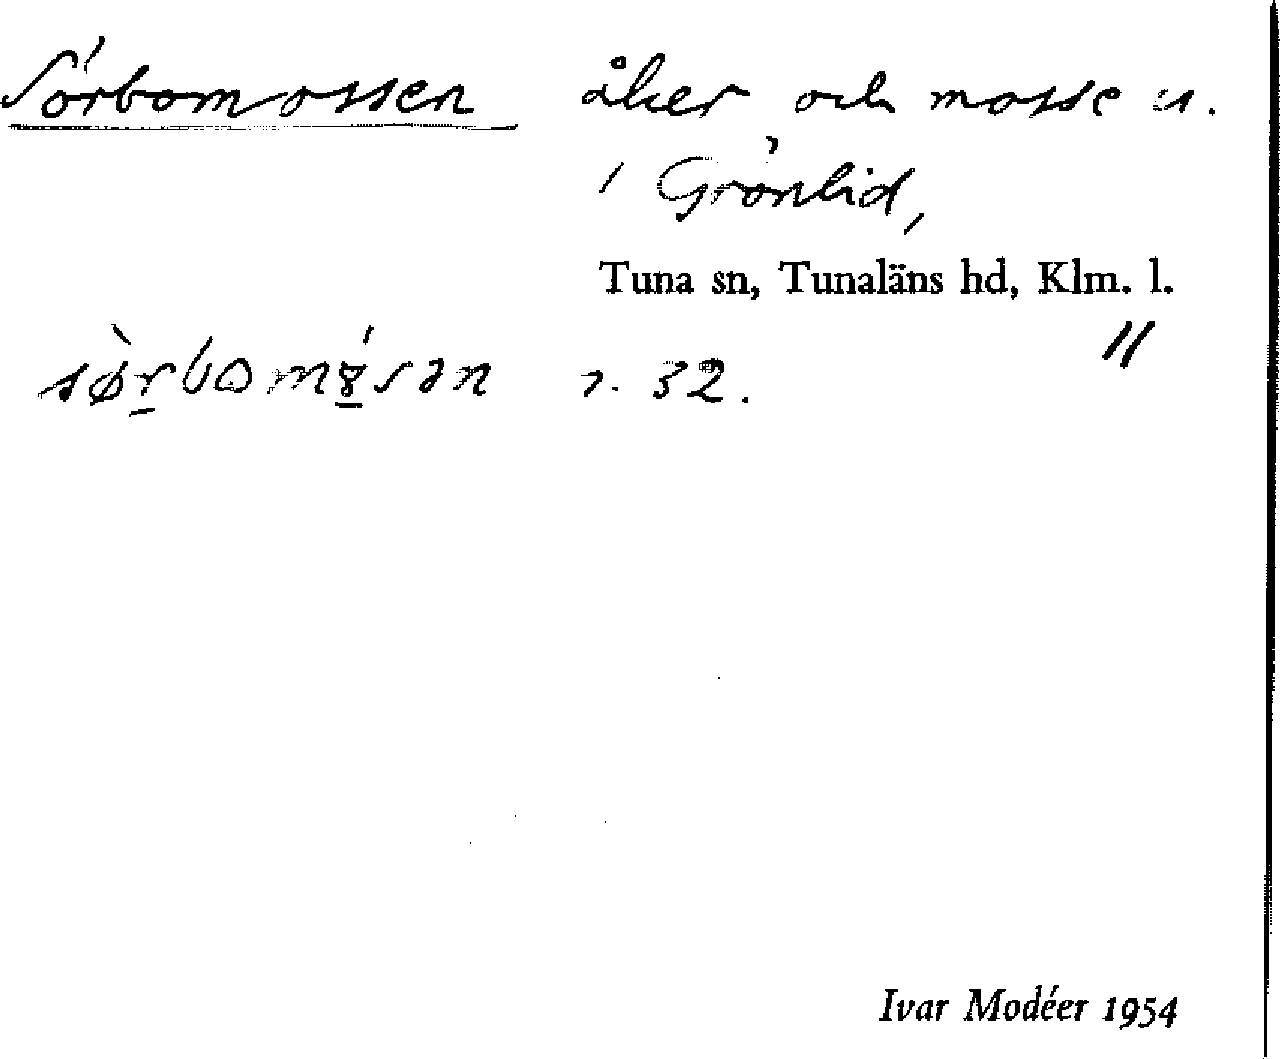 Sörbomossen åker och mosse u.
i Grönlid,
Tuna sn, Tunaläns hd, Klm. l.
"
sø̀rbomȣ́sən r. 32.
Ivar Modéer 1954